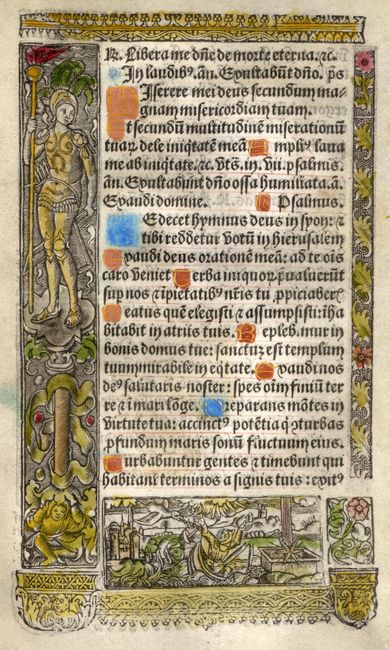 ℟. Libera me dñe de morte eterna. ⁊c.
In laudibꝰ. añ. Exultabũt dño. ps
Miserere mei deus secundum ma-
gnam misericordiam tuam.
Et secundũ multitudinẽ miserationũ
tuaꝝ dele iniq̃tatẽ meã. Ampliꝰ laua
me ab iniq̃tate. ⁊c. vts̃. in. vii. psalmis.
añ. Exultabunt dño ossa humiliata. ã.
Exaudi domine. Psalmus.
Te decet hymnus deus in syon: ⁊
tibi reddetur votũ in hierusalem
Exaudi deus orationẽ meã: ad te oĩs
caro veniet Verba iniquoꝝ p̃ualuerũt
sup nos ⁊ ĩpietatibꝰ nr̃is tu ꝓpiciaberꝭ
Beatus quẽ elegisti ⁊ assumpsisti: ĩha
bitabit in atriis tuis. Repleb.mur in
bonis domus tue: sanctuʒ est templum
tuum mirabile in eq̃tate. Exaudi nos
deꝰ salutaris noster: spes oĩm finiũ ter
re ⁊ ĩ mari lõge. Preparans mõtes in
virtute tua: accinctꝰ potẽtia q̃ cõturbas
ꝓfundum maris sonũ fluctuum eius.
Turbabuntur gentes ⁊ timebunt qui
habitant terminos a signis tuis: exitꝰ